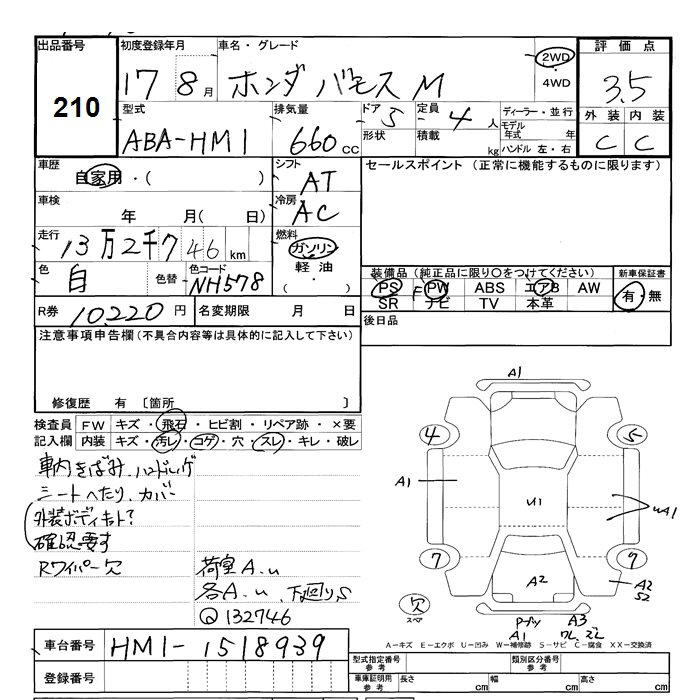 出品番号 初度登録年月 車名・グレード 評価点
210 17 8月 ホンダ バモス M 2WD ・4WD 3.5
型式 排気量 ドア 5 定員 4人 ディーラー・並行 外装 内装
ABA-HM1 660CC 形状 積載 kg モデル年式 年 ハンドル 左・右 C C
車歴 自家用・( ) シフト AT セールスポイント (正常に機能するものに限ります)
車検 年 月( 日) 冷房 AC
走行 13万2千746km 燃料 ガソリン 軽油 ( ・ )
色 白 色替 色コード NH578
装備品 (純正品に限り〇をつけてください) 新車保証書
PS PW ABS エアB AW 有・無
SR ナビ TV 本革
R券 10,220円 名変期限 月 日 後日品
注意事項申告欄(不具合内容等は具体的に記入して下さい)
修復歴 有 〔箇所 〕
検査員 FW キズ・飛石・ヒビ割・リペア跡・×要
記入欄 内装 キズ・汚レ・コゲ・穴・スレ・キレ・破レ
車内きばみ、ハンドルハゲ
シートへたり、カバー
外装ボディキット?
確認要す
Rワイパー欠 荷室A.u
各A.u 下廻りS
Q132746
車台番号 HM1-1518939
登録番号
A1
4 5
A1 U1 UA1
7 9
A2 A2
S2
欠
スペア
A1 A3
A-キズ E-エクボ U-凹み W-補修跡 S-サビ C-腐食 XX-交換済
型式指定番号 参考 類別区分番号 参考
車庫証明用 参考 長さ cm 幅 cm 高さ cm